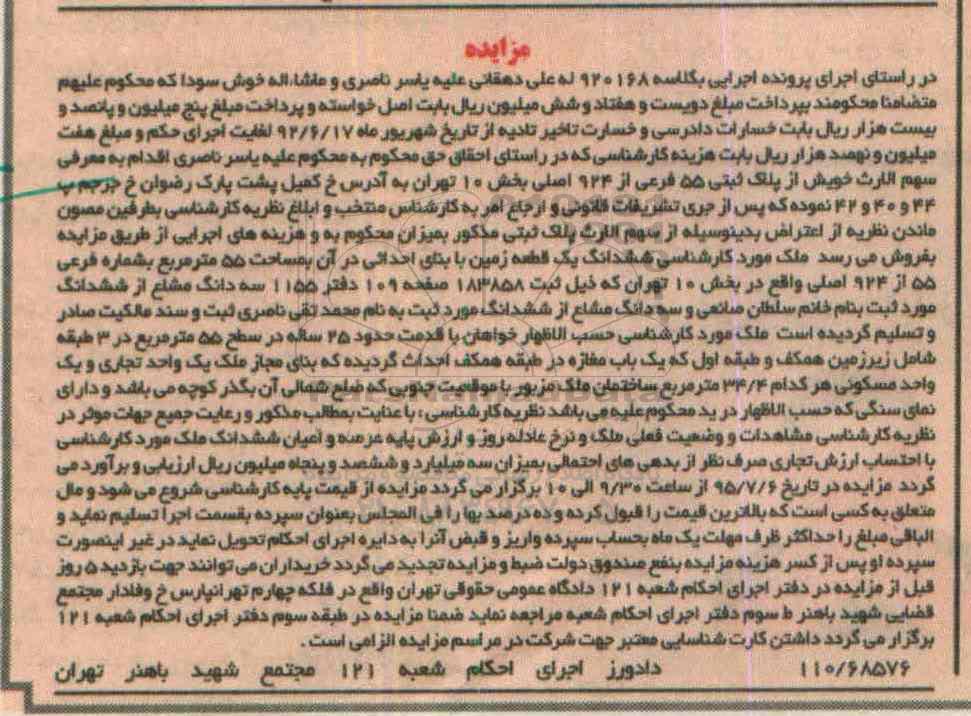 مزایده
در راستای اجرای پرونده اجرایی بکلاسه ۹۲۰۱۶۸ له علی دهقانی علیه یاسر ناصری و ماشااله خوش سودا که محکوم علیهم
متضامنا محکومند بپرداخت مبلغ دویست و هفتاد و شش میلیون ریال بابت اصل خواسته و پرداخت مبلغ پنج میلیون و پانصد و
بیست هزار ریال بابت خسارات دادرسی و خسارت تاخیر تادیه از تاریخ شهریور ماه ۹۲/۶/۱۷ لغایت اجرای حکم و مبلغ هفت
میلیون و نهصد هزار ریال بابت هزینه کارشناسی که در راستای احقاق حق محکوم به محکوم علیه یاسر ناصری اقدام به معرفی
سهم الارث خویش از پلاک ثبتی ۵۵ فرعی از ۹۲۴ اصلی بخش ۱۰ تهران به آدرس خ کمیل پشت پارک رضوان خ جرجم پ
۴۴ و ۴۰ و ۴۲ نموده که پس از جری تشریفات قانونی و ارجاع امر به کارشناس منتخب و ابلاغ نظریه کارشناسی بطرفین مصون
ماندن نظریه از اعتراض بدینوسیله از سهم الارث پلاک ثبتی مذکور بمیزان محکوم به و هزینه های اجرایی از طریق مزایده
بفروش می رسد ملک مورد کارشناسی ششدانگ یک قطعه زمین با بنای احداثی در آن بمساحت ۵۵ مترمربع بشماره فرعی
۵۵ از ۹۲۴ اصلی واقع در بخش ۱۰ تهران که ذیل ثبت ۱۸۳۸۵۸ صفحه ۱۰۹ دفتر ۱۱۵۵ سه دانگ مشاع از ششدانگ
مورد ثبت بنام خانم سلطان صانعی و سه دانگ مشاع از ششدانگ مورد ثبت به نام محمد تقی ناصری ثبت و سند مالکیت صادر
و تسلیم گردیده است ملک مورد کارشناسی حسب الاظهار خواهان با قدمت حدود ۲۵ ساله در سطح ۵۵ مترمربع در ۳ طبقه
شامل زیرزمین همکف و طبقه اول که یک باب مغازه در طبقه همکف احداث گردیده که بنای مجاز ملک یک واحد تجاری و یک
واحد مسکونی هر کدام ۳۴/۴ مترمربع ساختمان ملک مزبور با موقعیت جنوبی که ضلع شمالی آن بگذر کوچه می باشد و دارای
نمای سنگی که حسب الاظهار در ید محکوم علیه می باشد نظریه کارشناسی : با عنایت بمطالب مذکور و رعایت جمیع جهات موثر در
نظریه کارشناسی مشاهدات و وضعیت فعلی ملک و نرخ عادله روز و ارزش پایه عرصه و اعیان ششدانگ ملک مورد کارشناسی
با احتساب ارزش تجاری صرف نظر از بدهی های احتمالی بمیزان سه میلیارد و ششصد و پنجاه میلیون ریال ارزیابی و برآورد می
گردد مزایده در تاریخ ۹۵/۷/۶ از ساعت ۹/۳۰ الی ۱۰ برگزار می گردد مزایده از قیمت پایه کارشناسی شروع می شود و مال
متعلق به کسی است که بالاترین قیمت را قبول کرده و ده درصد بها را فی المجلس بعنوان سپرده بقسمت اجرا تسلیم نماید و
الباقی مبلغ را حداکثر ظرف مهلت یک ماه بحساب سپرده واریز و قبض آنرا به دایره اجرای احکام تحویل نماید در غیر اینصورت
سپرده او پس از کسر هزینه مزایده بنفع صندوق دولت ضبط و مزایده تجدید می گردد خریداران می توانند جهت بازدید ۵ روز
قبل از مزایده در دفتر اجرای احکام شعبه ۱۲۱ دادگاه عمومی حقوقی تهران واقع در فلکه چهارم تهرانپارس خ وفادار مجتمع
قضایی شهید باهنر ط سوم دفتر اجرای احکام شعبه مراجعه نماید ضمنا مزایده در طبقه سوم دفتر اجرای احکام شعبه ۱۲۱
برگزار می گردد داشتن کارت شناسایی معتبر جهت شرکت در مراسم مزایده الزامی است .
۱۱۰/۶۸۵۷۶ دادورز اجرای احکام شعبه ۱۲۱ مجتمع شهید باهنر تهران